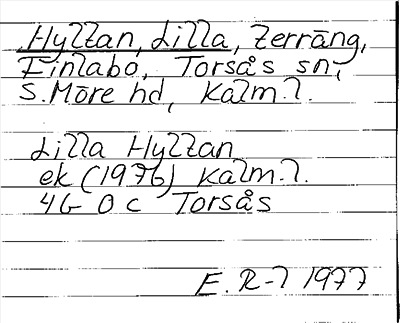 Hyltan, Lilla, Terräng,
Finlabo, Torsås sn,
S. Möre hd, Kalm. l.
Lilla Hyltan
ek (1976) Kalm. l.
4G 0 c Torsås
E. R-l 1977